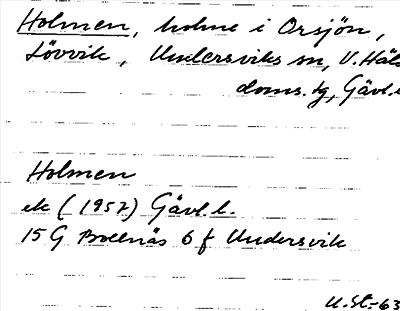 Holmen, holme i Orsjön,
Lövvik, Undersviks sn, V. Häl
doms. tg, Gävl. l
Holmen
ek (1957) Gävl. l.
15 G Bollnäs 6 f Undersvik
U. St. -63